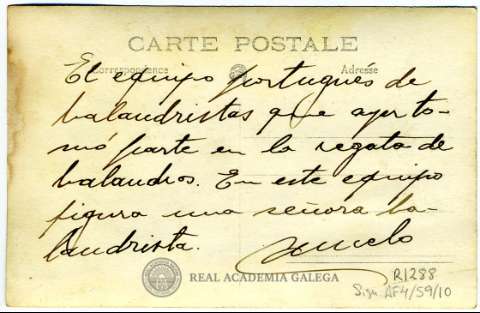 CARTE POSTALE
Correspondance Adresse
El equipo portugués de
balandristas que ayer to-
mó parte en la regata de
balandros. En este equipo
figura una señora ba-
landrista.
REAL ACADEMIA GALEGA
R1288
Sign. AF4/59/10